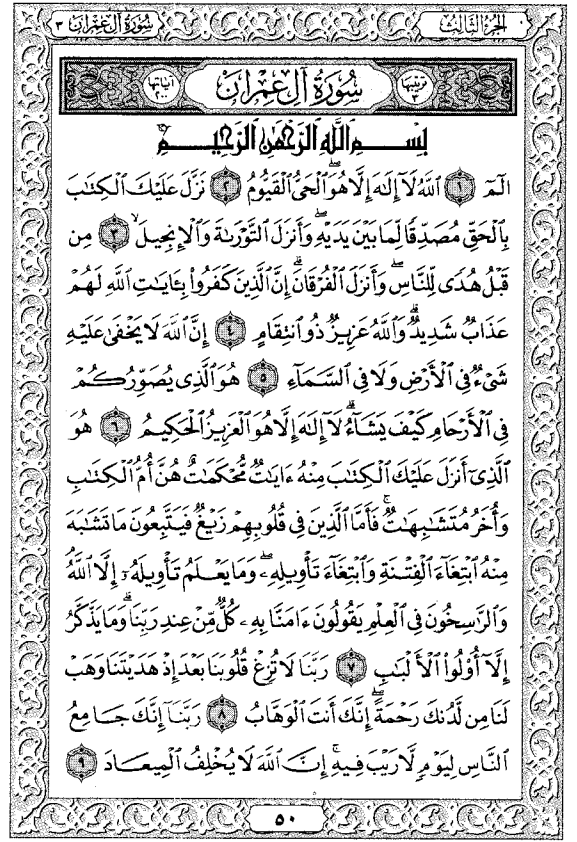 الجزء الثالث
سورة آل عمران ٣
ترتيبها ٣
سُورَةُ آلِ عِمْرَانَ
آياتها ٢٠٠
بِسْمِ اللَّهِ الرَّحْمَٰنِ الرَّحِيمِ
الٓمٓ ١ ٱللَّهُ لَآ إِلَٰهَ إِلَّا هُوَ ٱلْحَىُّ ٱلْقَيُّومُ ٢ نَزَّلَ عَلَيْكَ ٱلْكِتَٰبَ
بِٱلْحَقِّ مُصَدِّقًا لِّمَا بَيْنَ يَدَيْهِ وَأَنزَلَ ٱلتَّوْرَىٰةَ وَٱلْإِنجِيلَ ٣ مِن
قَبْلُ هُدًى لِّلنَّاسِ وَأَنزَلَ ٱلْفُرْقَانَ إِنَّ ٱلَّذِينَ كَفَرُوا۟ بِـَٔايَٰتِ ٱللَّهِ لَهُمْ
عَذَابٌ شَدِيدٌ وَٱللَّهُ عَزِيزٌ ذُو ٱنتِقَامٍ ٤ إِنَّ ٱللَّهَ لَا يَخْفَىٰ عَلَيْهِ
شَىْءٌ فِى ٱلْأَرْضِ وَلَا فِى ٱلسَّمَآءِ ٥ هُوَ ٱلَّذِى يُصَوِّرُكُمْ
فِى ٱلْأَرْحَامِ كَيْفَ يَشَآءُ لَآ إِلَٰهَ إِلَّا هُوَ ٱلْعَزِيزُ ٱلْحَكِيمُ ٦ هُوَ
ٱلَّذِىٓ أَنزَلَ عَلَيْكَ ٱلْكِتَٰبَ مِنْهُ ءَايَٰتٌ مُّحْكَمَٰتٌ هُنَّ أُمُّ ٱلْكِتَٰبِ
وَأُخَرُ مُتَشَٰبِهَٰتٌ فَأَمَّا ٱلَّذِينَ فِى قُلُوبِهِمْ زَيْغٌ فَيَتَّبِعُونَ مَا تَشَٰبَهَ
مِنْهُ ٱبْتِغَآءَ ٱلْفِتْنَةِ وَٱبْتِغَآءَ تَأْوِيلِهِۦ وَمَا يَعْلَمُ تَأْوِيلَهُۥٓ إِلَّا ٱللَّهُ
وَٱلرَّٰسِخُونَ فِى ٱلْعِلْمِ يَقُولُونَ ءَامَنَّا بِهِۦ كُلٌّ مِّنْ عِندِ رَبِّنَا وَمَا يَذَّكَّرُ
إِلَّآ أُو۟لُوا۟ ٱلْأَلْبَٰبِ ٧ رَبَّنَا لَا تُزِغْ قُلُوبَنَا بَعْدَ إِذْ هَدَيْتَنَا وَهَبْ
لَنَا مِن لَّدُنكَ رَحْمَةً إِنَّكَ أَنتَ ٱلْوَهَّابُ ٨ رَبَّنَآ إِنَّكَ جَامِعُ
ٱلنَّاسِ لِيَوْمٍ لَّا رَيْبَ فِيهِ إِنَّ ٱللَّهَ لَا يُخْلِفُ ٱلْمِيعَادَ ٩
٥٠